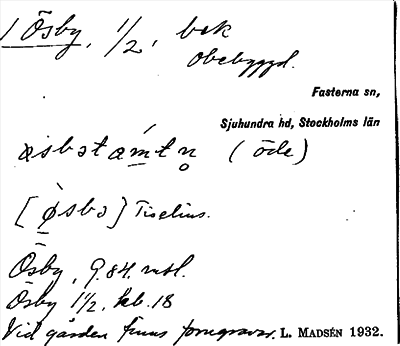 1 Ösby, 1/2, bek
obebyggd.
Fasterna sn,
Sjuhundra hd, Stockholms län
øsbətamtn̥ (öde)
[ø̀sbə] Tiselius.
Ösby, 9.84. mtl.
Ösby 1 1/2, kb. 18
Vid gården finns forngravar. L. MADSÉN 1932.